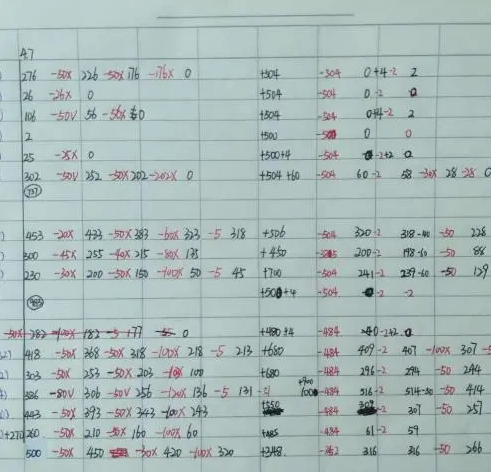 4.7
276 -50X 226 -50X 176 -176X 0 +504 -504 0+4-2 2
26 -26X 0 +504 -504 0-2 0
106 -50V 56 -56X 0 +504 -504 0+4-2 2
2 +500 -500 0 0
25 -25X 0 +500+4 -504 -2+2 0
302 -50V 252 -50X 202 -202X 0 +504+60 -504 60-2 58 -30X 28 -28 0
737
453 -20X 433 -50X 383 -60X 323 -5 318 +506 -504 320-2 318-40 -50 228
300 -45X 255 -40X 215 -80X 135 +450 200-2 198-60 -50 88
230 -30X 200 -50X 150 -100X 50 -5 45 +700 -504 241-2 239-60 -50 129
+500+4 -504 -2 -2
983
-50X 282 -100X 182 -5 177 0 +480+4 -484 0-2+2 0
418 -50X 368 -50X 318 -100X 218 -5 213 +680 -484 409-2 407 -100X 307
303 -50X 253 -50X 203 100 +680 -484 296-2 294 -50 244
386 -80V 306 -50V 256 -120X 136 -5 131 -484 516-2 514-50 -50 414
443 -50X 393 -50X 343 -100X 243 +550 -484 309 307 -50 257
+270 260 -50X 210 -50X 160 -100X 60 +485 -484 61-2 59
500 -50X 450 -30X 420 -100X 320 +348 316 316 -50 266